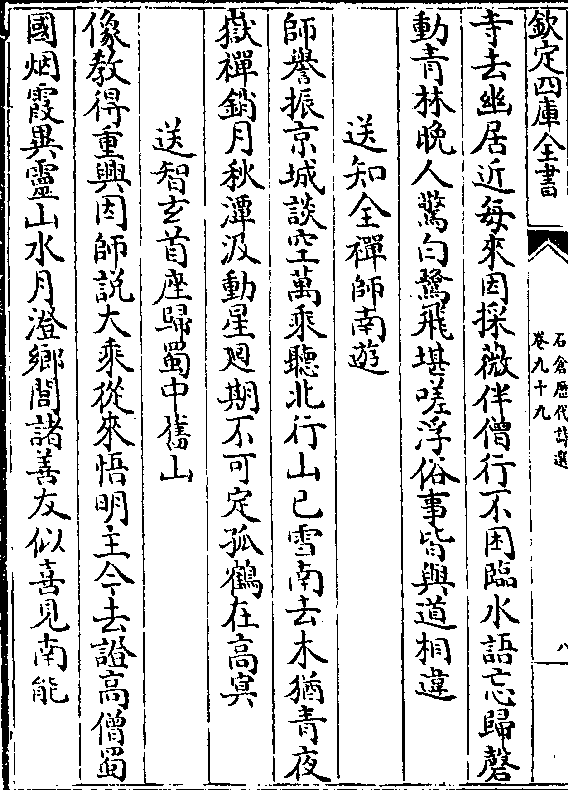 欽定四庫全書
石倉歴代詩選
卷九十九
八
寺去幽居近每來因採薇伴僧行不困臨水語忘歸磬
動青林晚人驚白鷺飛堪嗟浮俗事皆與道相違
送知全禪師南遊
師譽振京城談空萬乘聽北行山已雪南去木猶青夜
嶽禪銷月秋潭汲動星迴期不可定孤鶴在高冥
送智玄首座歸蜀中舊山
像教得重興因師説大乘從來悟明主今去證高僧蜀
國烟霞異靈山水月澄鄉閭諸善友似喜見南能